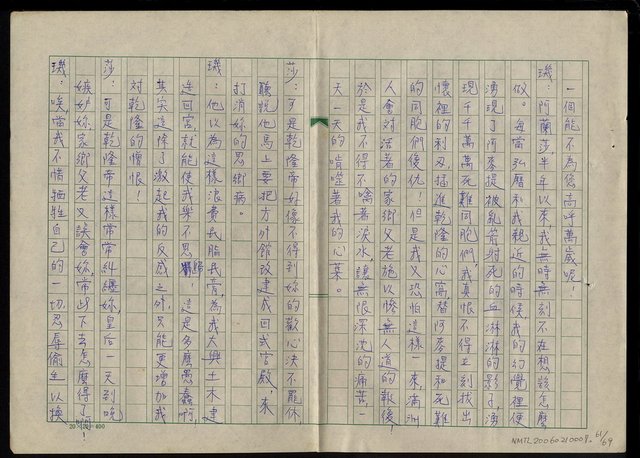 一個能不為您高呼萬歲呢
璣：阿蘭莎半年以來，我無時無刻不在想該怎麼
做。每當弘曆和我親近的時侯我的幻覺裡便
湧現了阿麥提被亂箭射死的血淋淋的影子，湧
現千千萬萬死難同胞們，我真恨不得立刻找出
懷裡的利刃，插進乾隆的心窩，替阿麥提和死難
的同胞們復仇！但是我又恐怕這樣一來，滿洲
人會對活著的家鄉父老施以慘無人道的報復，
於是我不得不嚥著淚水，讓無恨深沈的痛苦，一
天一天的啃噬著我的心葉。
莎：可是乾隆帝好像不得到妳的歡心決不罷休，
聽說他馬上要把方外館改建成回式宮殿，來
打消妳的思鄉病。
璣：他以為這樣浪費民脂民膏，為我大興土木建
造回宮，就能使我樂不思歸，這是多麼愚蠢啊，
其實這除了激起我的反感之外，只能更增加我
對乾隆的憎恨！
莎：可是乾隆帝這樣常常糾纏妳，皇后一天到晚
嫉妒妳，家鄉父老又誤會妳，常此下去怎麼得了啊！
璣：唉當我不惜犧牲自己的一切，忍辱偷生以換
20×20=400
NMTL20060210009. 61/69